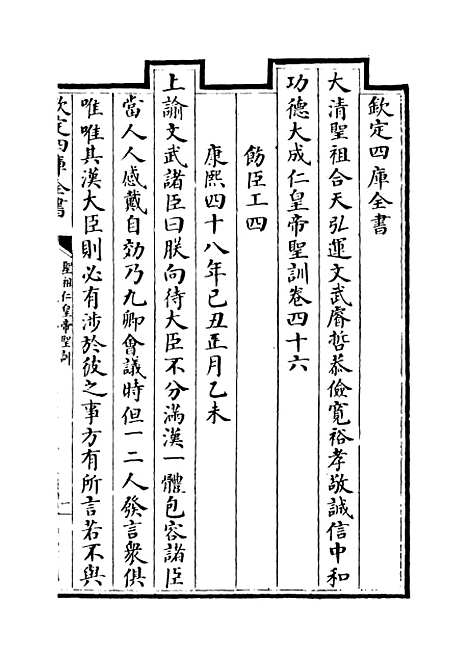 欽定四庫全書
大清聖祖合天弘運文武睿哲恭儉寛裕孝敬誠信中和
功德大成仁皇帝聖訓卷四十六
飭臣工四
康熙四十八年己丑正月乙未
上諭文武諸臣曰朕向待大臣不分滿漢一體包容諸臣
當人人感戴自効乃九卿會議時但一二人發言衆俱
唯唯其漢大臣則必有涉於彼之事方有所言若不與
欽定四庫全書
聖祖仁皇帝聖訓
一